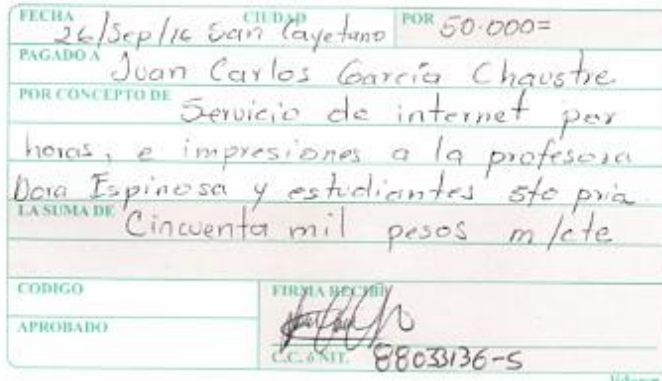 FECHA 26/Sep/16 CIUDAD San Cayetano POR 50.000=
PAGADO A Juan Carlos García Chaustre
POR CONCEPTO DE Servicio de internet por
horas, e impresiones a la profesora
Dora Espinosa y estudiantes 5to pria.
LA SUMA DE Cincuenta mil pesos m/cte
CODIGO
FIRMA RECIBI
APROBADO
C.C. ó NIT. 88033136-5